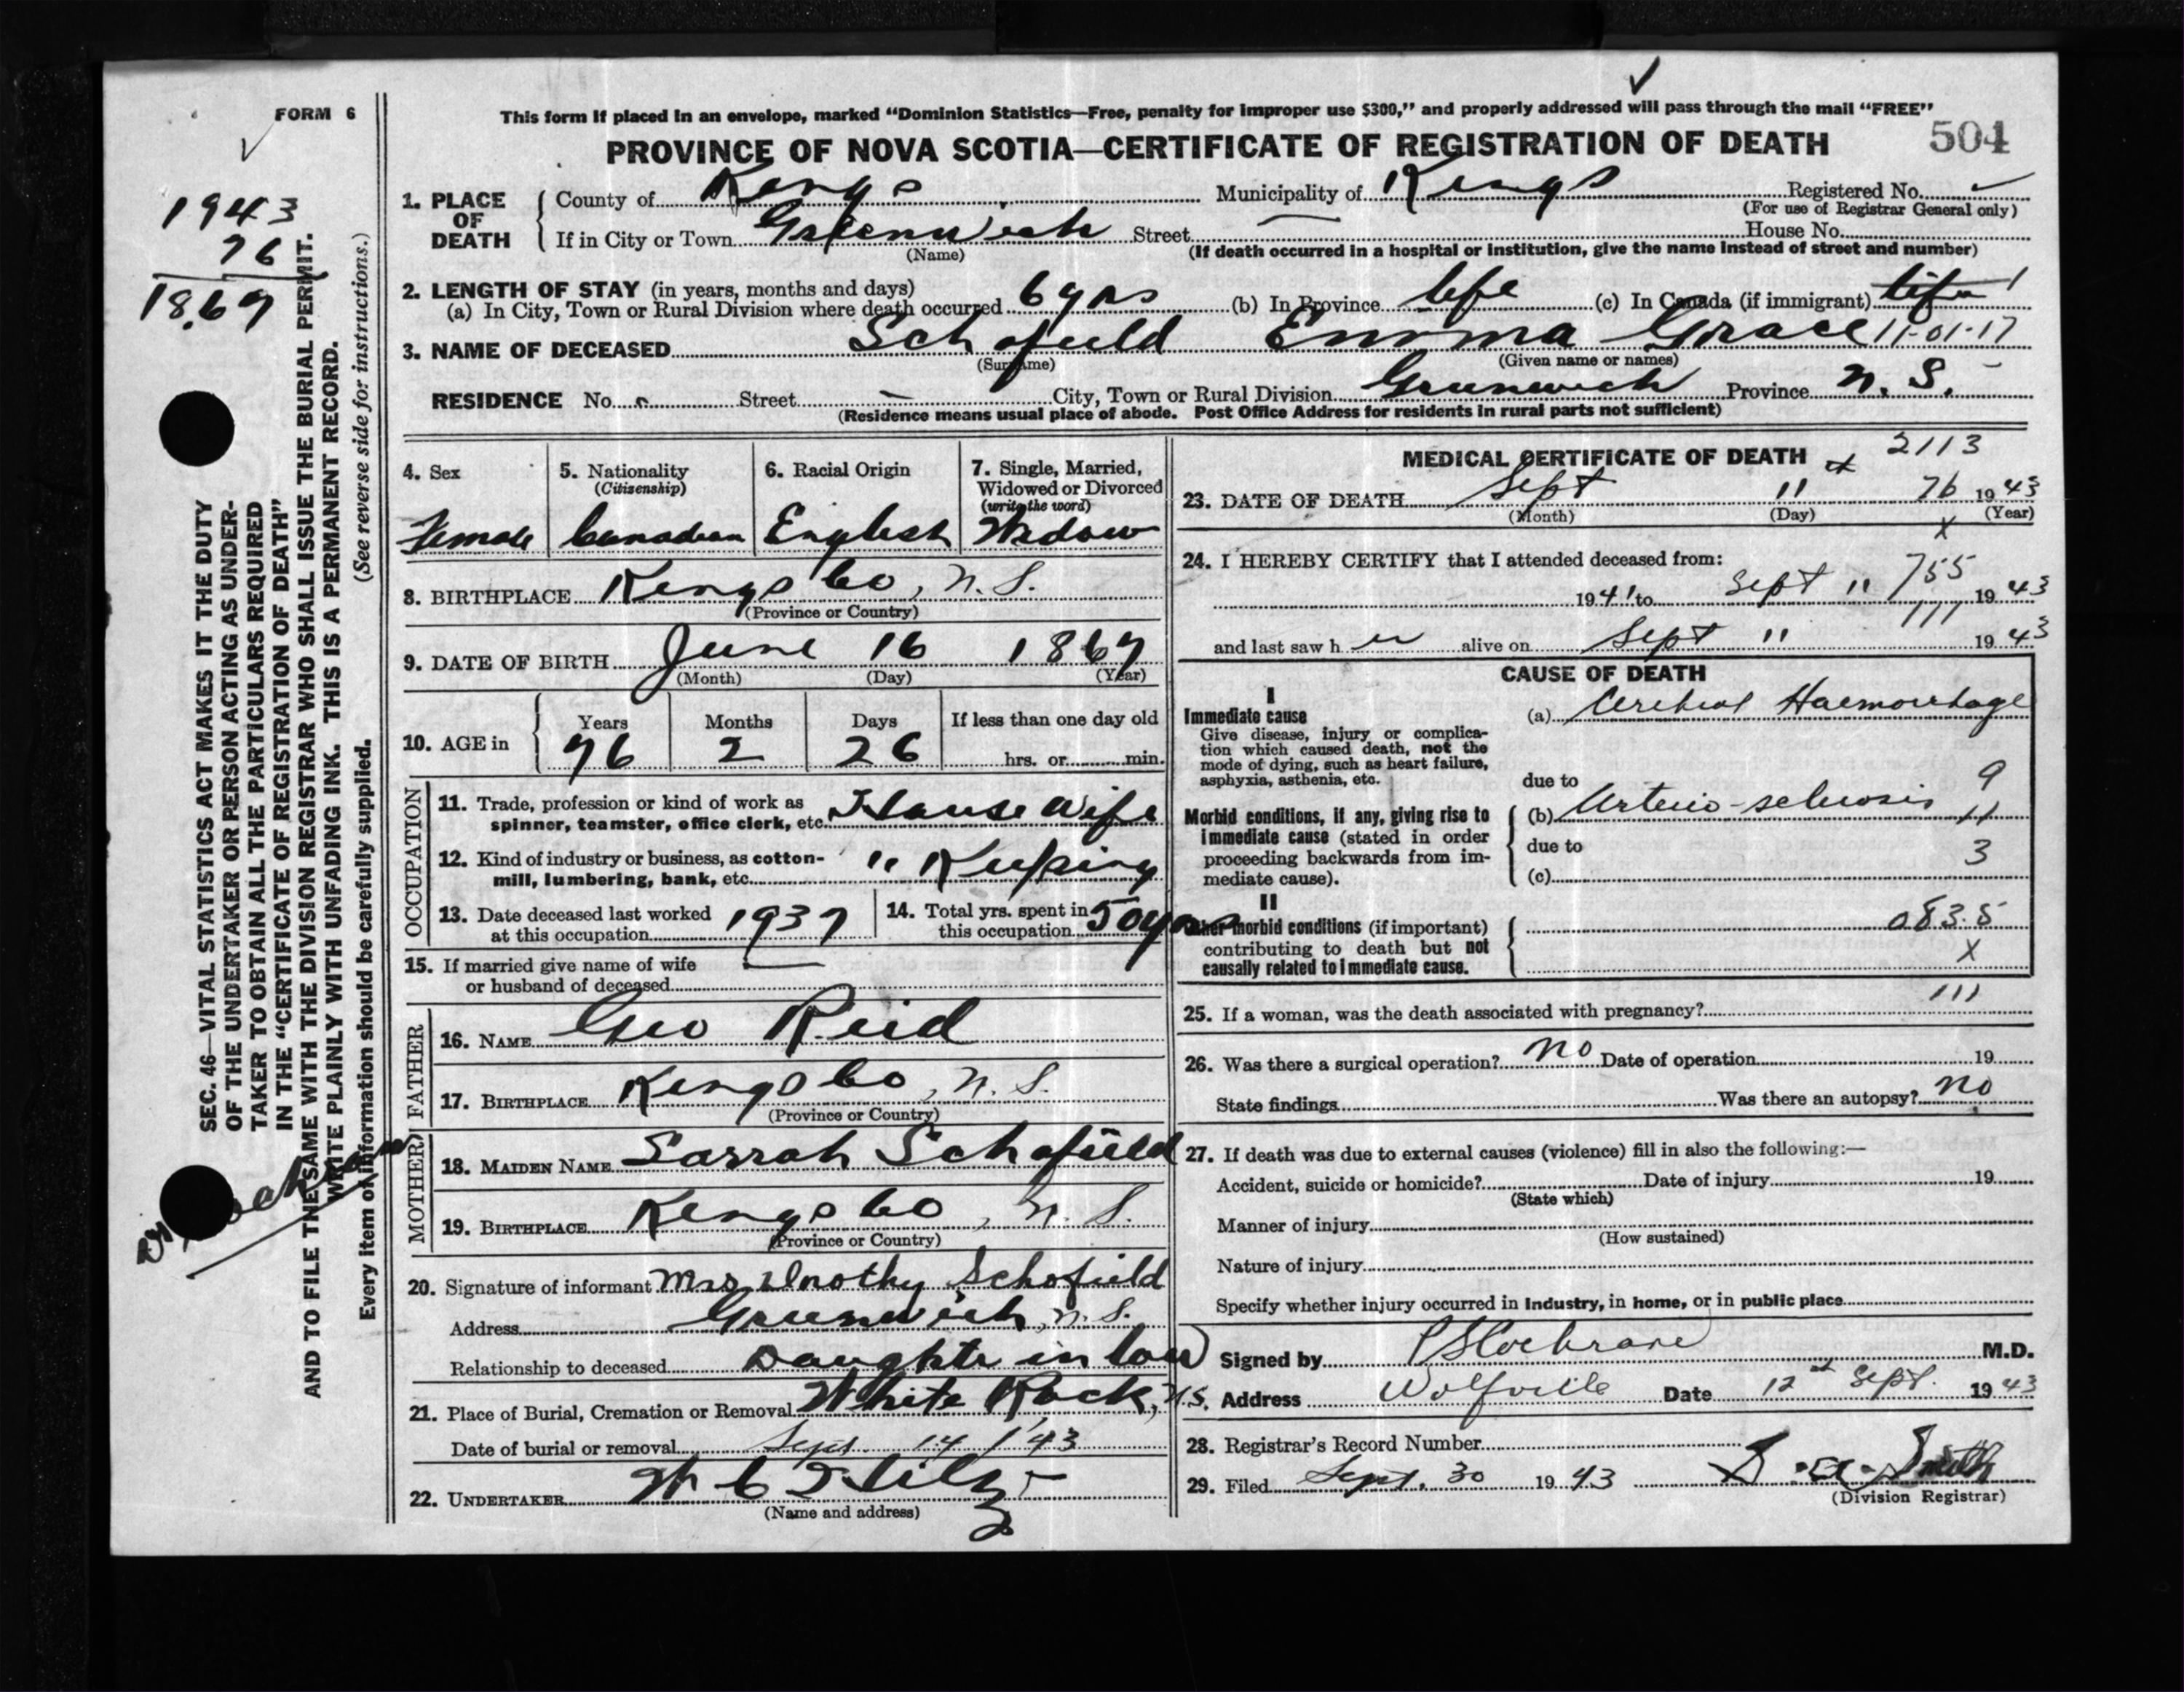 FORM 6
This form if placed in an envelope, marked "Dominion Statistics—Free, penalty for improper use $300," and properly addressed will pass through the mail "FREE"
PROVINCE OF NOVA SCOTIA—CERTIFICATE OF REGISTRATION OF DEATH 504
1943
76
1867
SEC. 46—VITAL STATISTICS ACT MAKES IT THE DUTY
OF THE UNDERTAKER OR PERSON ACTING AS UNDER-
TAKER TO OBTAIN ALL THE PARTICULARS REQUIRED
IN THE "CERTIFICATE OF REGISTRATION OF DEATH"
AND TO FILE THE SAME WITH THE DIVISION REGISTRAR WHO SHALL ISSUE THE BURIAL PERMIT.
WRITE PLAINLY WITH UNFADING INK. THIS IS A PERMANENT RECORD.
Every item of information should be carefully supplied. (See reverse side for instructions.)
1. PLACE OF DEATH County of Kings Municipality of Kings Registered No.
(For use of Registrar General only)
If in City or Town Greenwich Street House No.
(Name) (If death occurred in a hospital or institution, give the name instead of street and number)
2. LENGTH OF STAY (in years, months and days)
(a) In City, Town or Rural Division where death occurred 6 yrs (b) In Province life (c) In Canada (if immigrant) life
3. NAME OF DECEASED Schofield Emma Grace 11-01-17
(Surname) (Given name or names)
RESIDENCE No. Street City, Town or Rural Division Greenwich Province N. S.
(Residence means usual place of abode. Post Office Address for residents in rural parts not sufficient)
4. Sex Female
5. Nationality (Citizenship) Canadian
6. Racial Origin English
7. Single, Married, Widowed or Divorced (write the word) Widow
8. BIRTHPLACE Kings Co, N. S.
(Province or Country)
9. DATE OF BIRTH June 16 1867
(Month) (Day) (Year)
10. AGE in Years Months Days If less than one day old
76 2 26 hrs. or min.
OCCUPATION
11. Trade, profession or kind of work as spinner, teamster, office clerk, etc. House Wife
12. Kind of industry or business, as cotton-mill, lumbering, bank, etc. " Keeping
13. Date deceased last worked at this occupation 1937
14. Total yrs. spent in this occupation 50 yrs
15. If married give name of wife or husband of deceased
FATHER
16. NAME Geo Reid
17. BIRTHPLACE Kings Co, N. S.
(Province or Country)
MOTHER
18. MAIDEN NAME Sarrah Schofield
19. BIRTHPLACE Kings Co, N. S.
(Province or Country)
20. Signature of informant Mrs Dorothy Schofield
Address Greenwich, N.S.
Relationship to deceased Daughte in law
21. Place of Burial, Cremation or Removal White Rock, N.S.
Date of burial or removal Sept. 14 / '43
22. UNDERTAKER
(Name and address)
MEDICAL CERTIFICATE OF DEATH 2113
23. DATE OF DEATH Sept 11 76 1943
(Month) (Day) (Year)
24. I HEREBY CERTIFY that I attended deceased from:
1941 to Sept 11 755 1943
111
and last saw her alive on Sept 11 1943
CAUSE OF DEATH
I
Immediate cause
Give disease, injury or complica-
tion which caused death, not the
mode of dying, such as heart failure,
asphyxia, asthenia, etc.
(a) Cerebral Haemorrhage
due to 9
Morbid conditions, if any, giving rise to
immediate cause (stated in order
proceeding backwards from im-
mediate cause).
(b) Arterio-sclerosis 11
due to 3
(c)
II
Other morbid conditions (if important)
contributing to death but not
causally related to immediate cause.
083.5
X
25. If a woman, was the death associated with pregnancy? 111
26. Was there a surgical operation? no Date of operation 19
State findings Was there an autopsy? no
27. If death was due to external causes (violence) fill in also the following:—
Accident, suicide or homicide? Date of injury 19
(State which)
Manner of injury
(How sustained)
Nature of injury
Specify whether injury occurred in Industry, in home, or in public place
Signed by PSCochrane M.D.
Address Wolfville Date 12th Sept. 1943
28. Registrar's Record Number
29. Filed Sept. 30 1943 Smith
(Division Registrar)